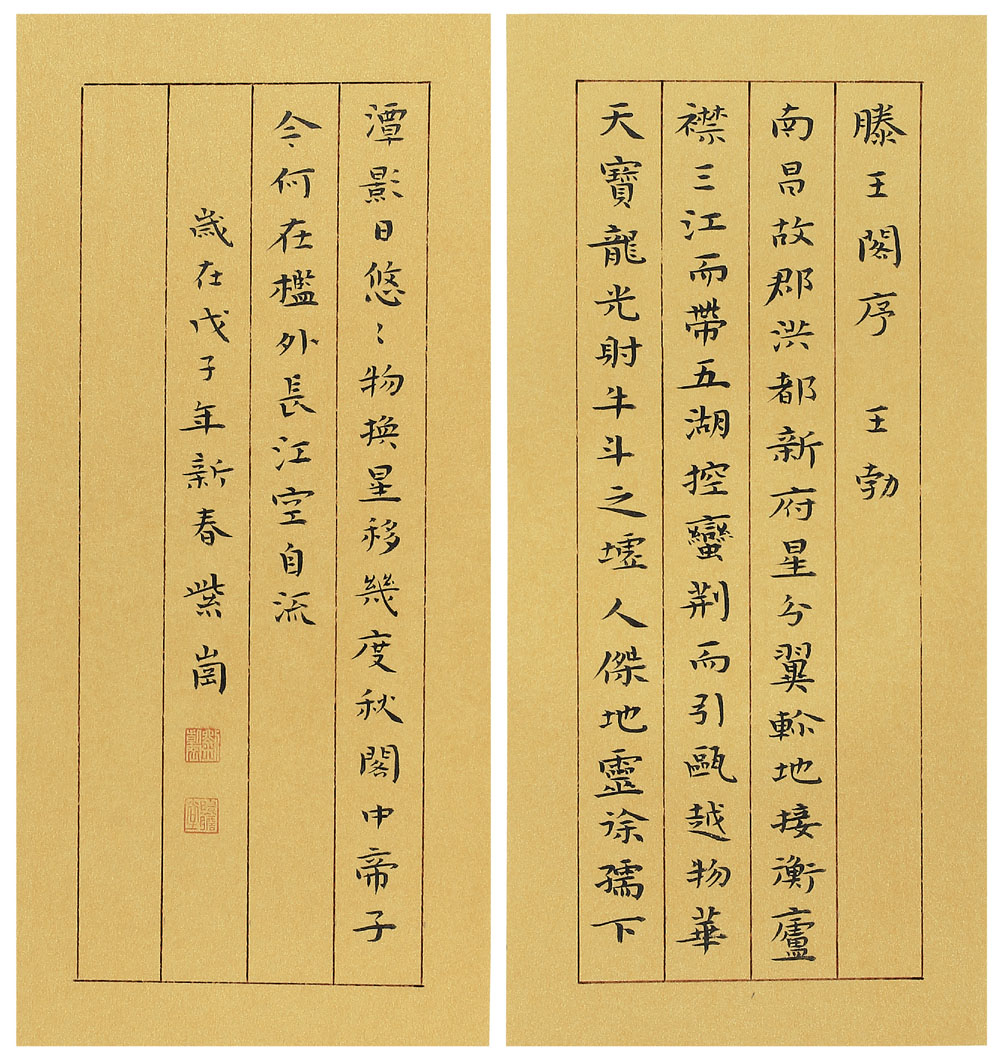 滕王閣序　王勃
南昌故郡洪都新府星分翼軫地接衡廬
襟三江而帶五湖控蠻荆而引甌越物華
天寶龍光射牛斗之墟人傑地靈徐孺下
潭影日悠〻物換星移幾度秋閣中帝子
今何在檻外長江空自流
歲在戊子年新春紫崗